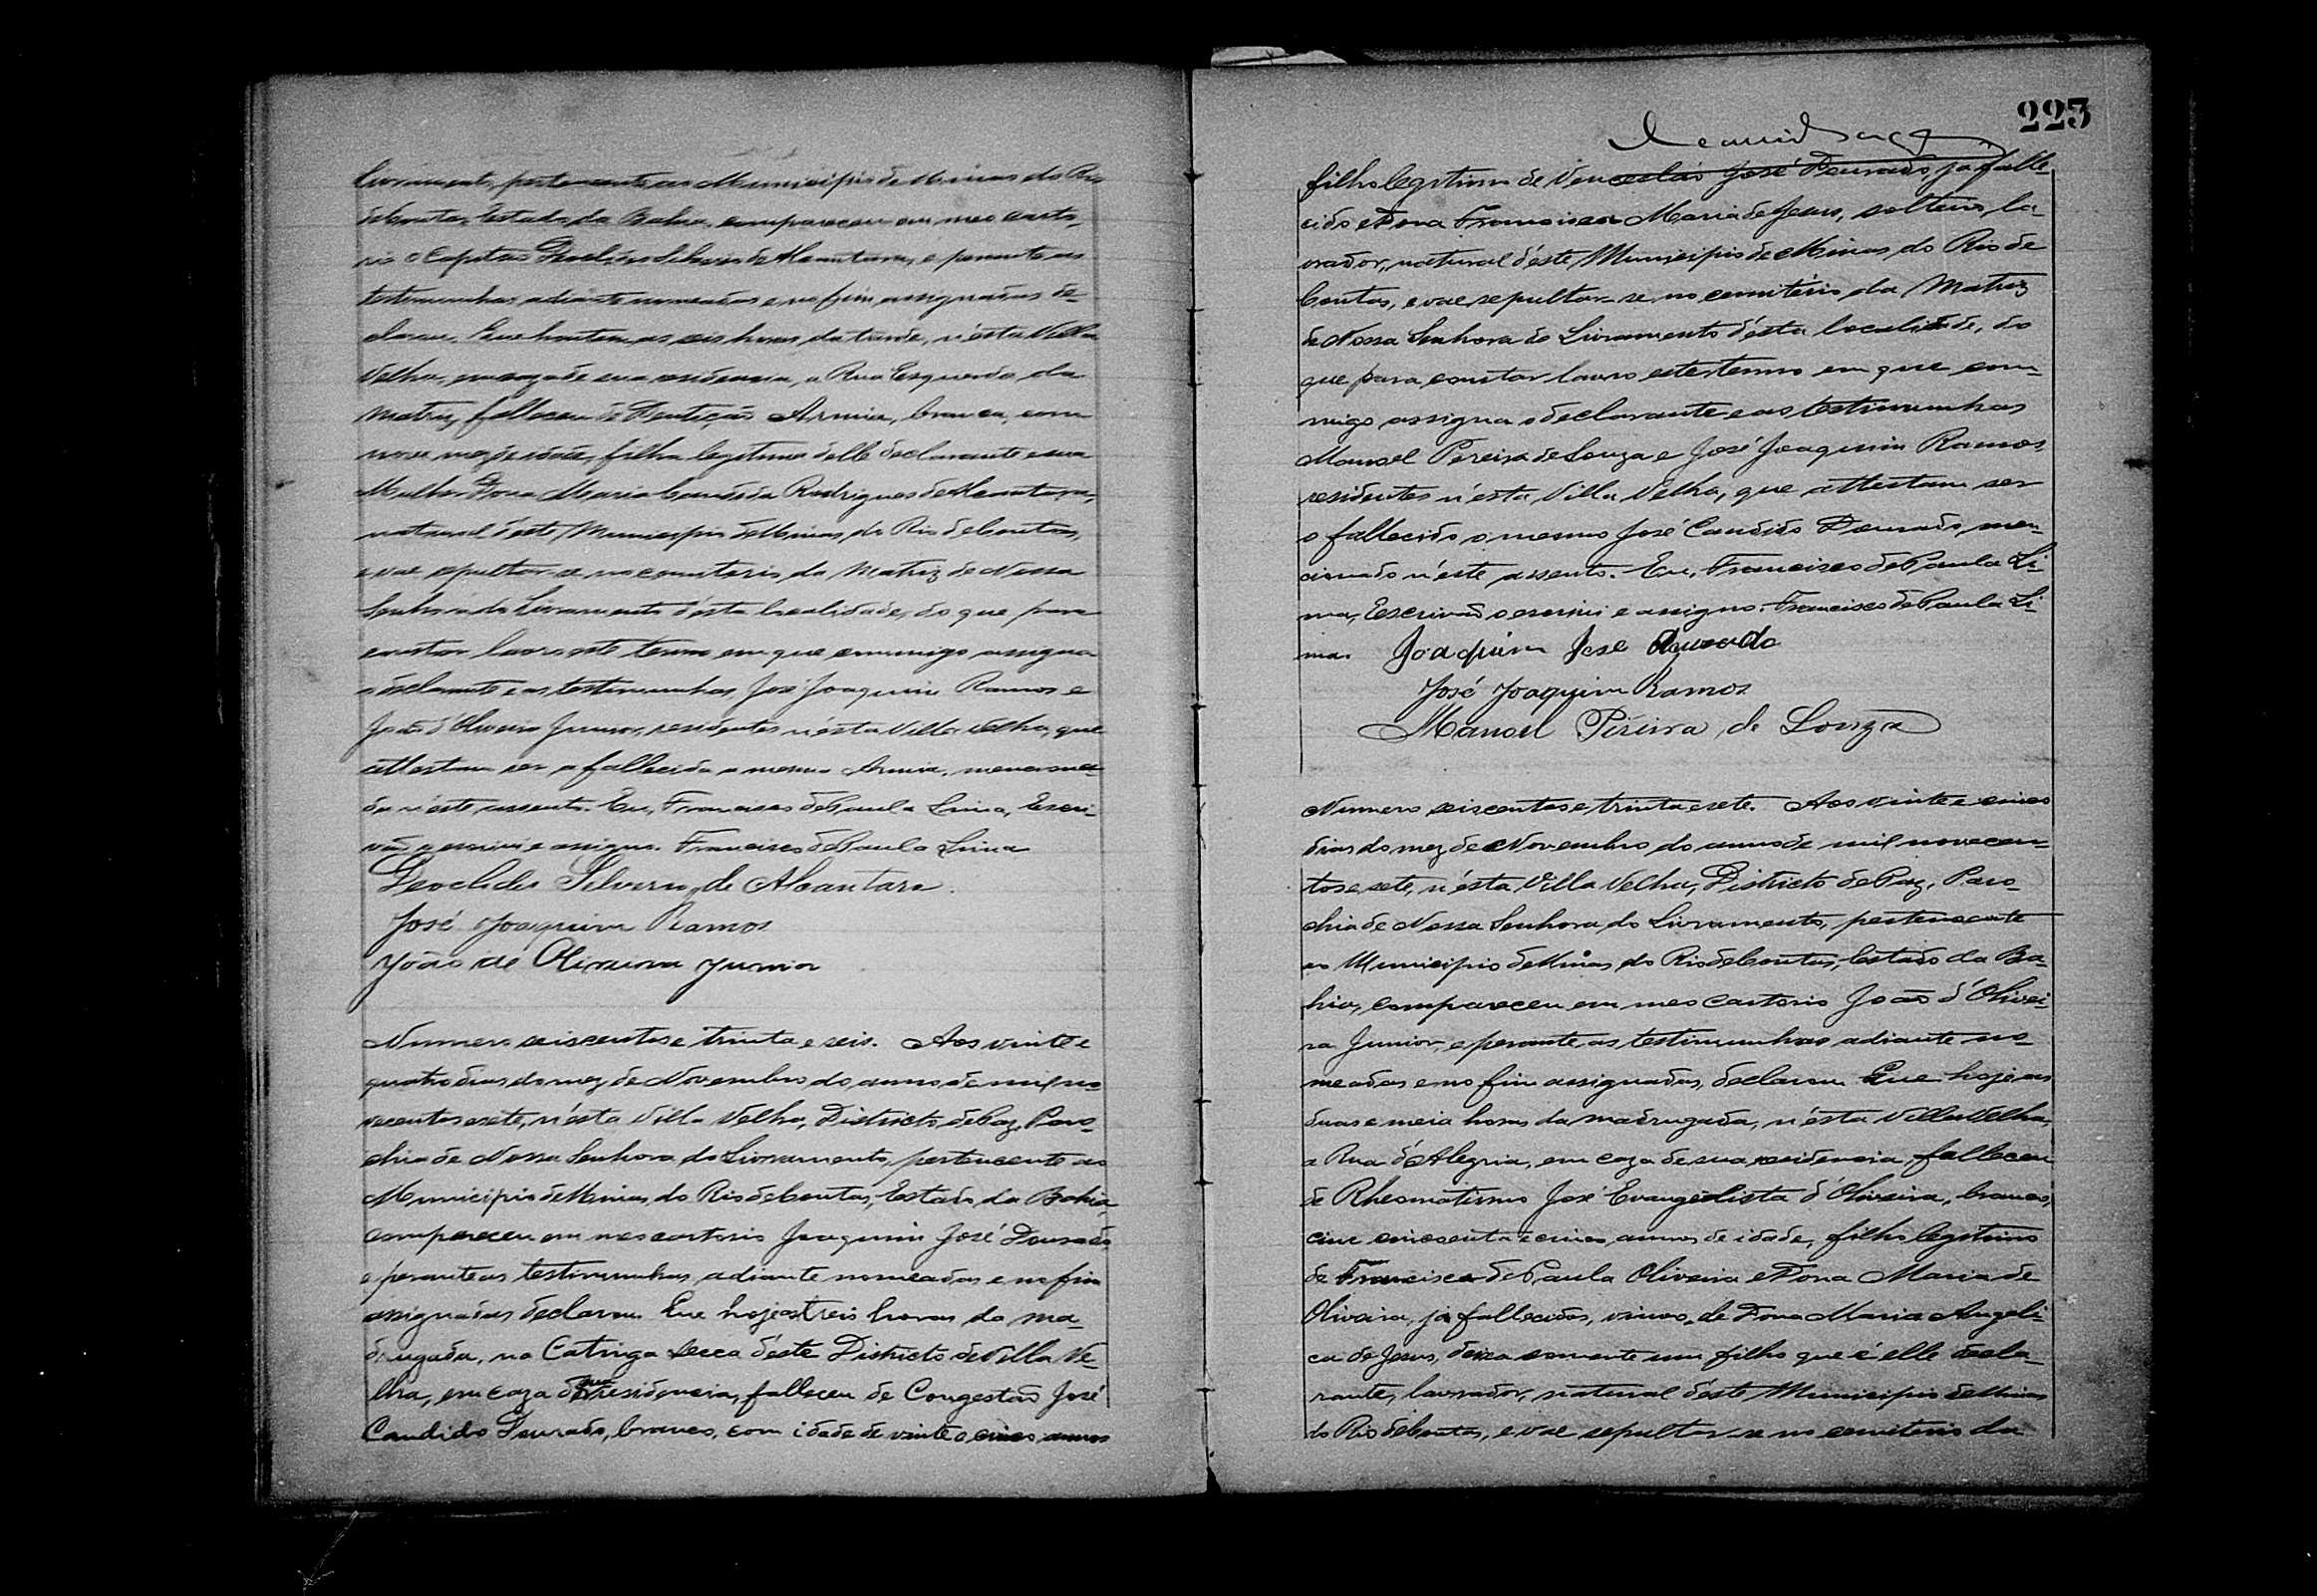 Livramento, pertencente ao Municipio de Minas do Rio
de Contas, Estado da Bahia, compareceu em meo carto-
rio o Capitão Deoclides Silverio de Alcantara, e perante as
testimunhas adiante nomeadas e no fim assignadas de-
clarou. Que hontem as seis horas da tarde, n'esta Villa
Velha, em caza de sua residencia, a Rua Esquerda da
Matriz, falleceu de Dentição Armia, branca, com
nove mezes de idade, filha legitima delle declarante e sua
Mulher Dona Maria Candida Rodrigues de Alcantara,
natural d'este Municipio de Minas do Rio de Contas,
e vae sepultar-se no cemiterio da Matriz de Nossa
Senhora do Livramento d'esta localidade, do que para
constar lavro este termo em que commigo assigna
o declarante e as testimunhas, José Joaquim Ramos e
João d'Oliveira Junior, residentes n'esta Villa Velha, que
attestam ser a fallecida a mesma Armia, menciona-
da n'este assento. Eu, Francisco de Paula Lima, Escri-
vão o escrivi e assigno. Francisco de Paula Lima
Deoclides Silverio de Alcantara.
José Joaquim Ramos
João de Oliveira Junior
Numero seiscentos e trinta e seis. Aos vinte e
quatro dias do mez de Novembro do anno de mil no-
vecentos e sete, n'esta Villa Velha, Districto de Paz, Paro-
chia de Nossa Senhora do Livramento, pertencente ao
Municipio de Minas do Rio de Contas, Estado da Bahia,
compareceu em meo cartorio Joaquim José Dourado
e perante as testimunhas adiante nomeadas e no fim
assignadas declarou. Que hoje as treis horas da ma-
drugada, na Catinga Secca d'este Districto de Villa Ve-
lha, em caza de sua residencia, falleceu de Congestão José
Candido Dourado, branco, com idade de vinte e cinco annos
223
filho legitimo de Venceslão José Dourado, já falle-
cido e Dona Francisca Maria de Jesus, solteiro, la-
vrador, natural d'este Municipio de Minas do Rio de
Contas, e vae sepultar-se no cemiterio da Matriz
de Nossa Senhora do Livramento d'esta localidade, do
que para constar lavro este termo em que com-
migo assigna o declarante e as testimunhas
Manoel Pereira de Souza e José Joaquim Ramos,
residentes n'esta Villa Velha, que attestam ser
o fallecido o mesmo José Candido Dourado, men-
cionado n'este assento. Eu, Francisco de Paula Li-
ma, Escrivão o escrivi e assigno. Francisco de Paula Li-
ma. Joaquim José Dourado
José Joaquim Ramos
Manoel Pereira de Souza
Numero seiscentos e trinta e sete. Aos vinte e cinco
dias do mez de Novembro do anno de mil novecen-
tos e sete, n'esta Villa Velha, Districto de Paz, Paro-
chia de Nossa Senhora do Livramento, pertencente
ao Municipio de Minas do Rio de Contas, Estado da Ba-
hia, compareceu em meo cartorio João d'Olivei-
ra Junior, e perante as testimunhas adiante no-
meadas e no fim assignadas, declarou. Que hoje as
duas e meia horas da madrugada, n'esta Villa Velha,
a Rua d'Alegria, em caza de sua residencia, falleceu
de Rheomatismo José Evangelista d'Oliveira, branco,
cincoenta e cinco annos de idade, filho legitimo
de Francisco de Paula Oliveira e Dona Maria de
Oliveira, já fallecidos, viuvo, de Dona Maria Angeli-
ca de Jesus, deixa somente um filho que é elle decla-
rante, lavrador, natural d'este Municipio de Minas
do Rio de Contas, e vae sepultar-se no cemiterio da